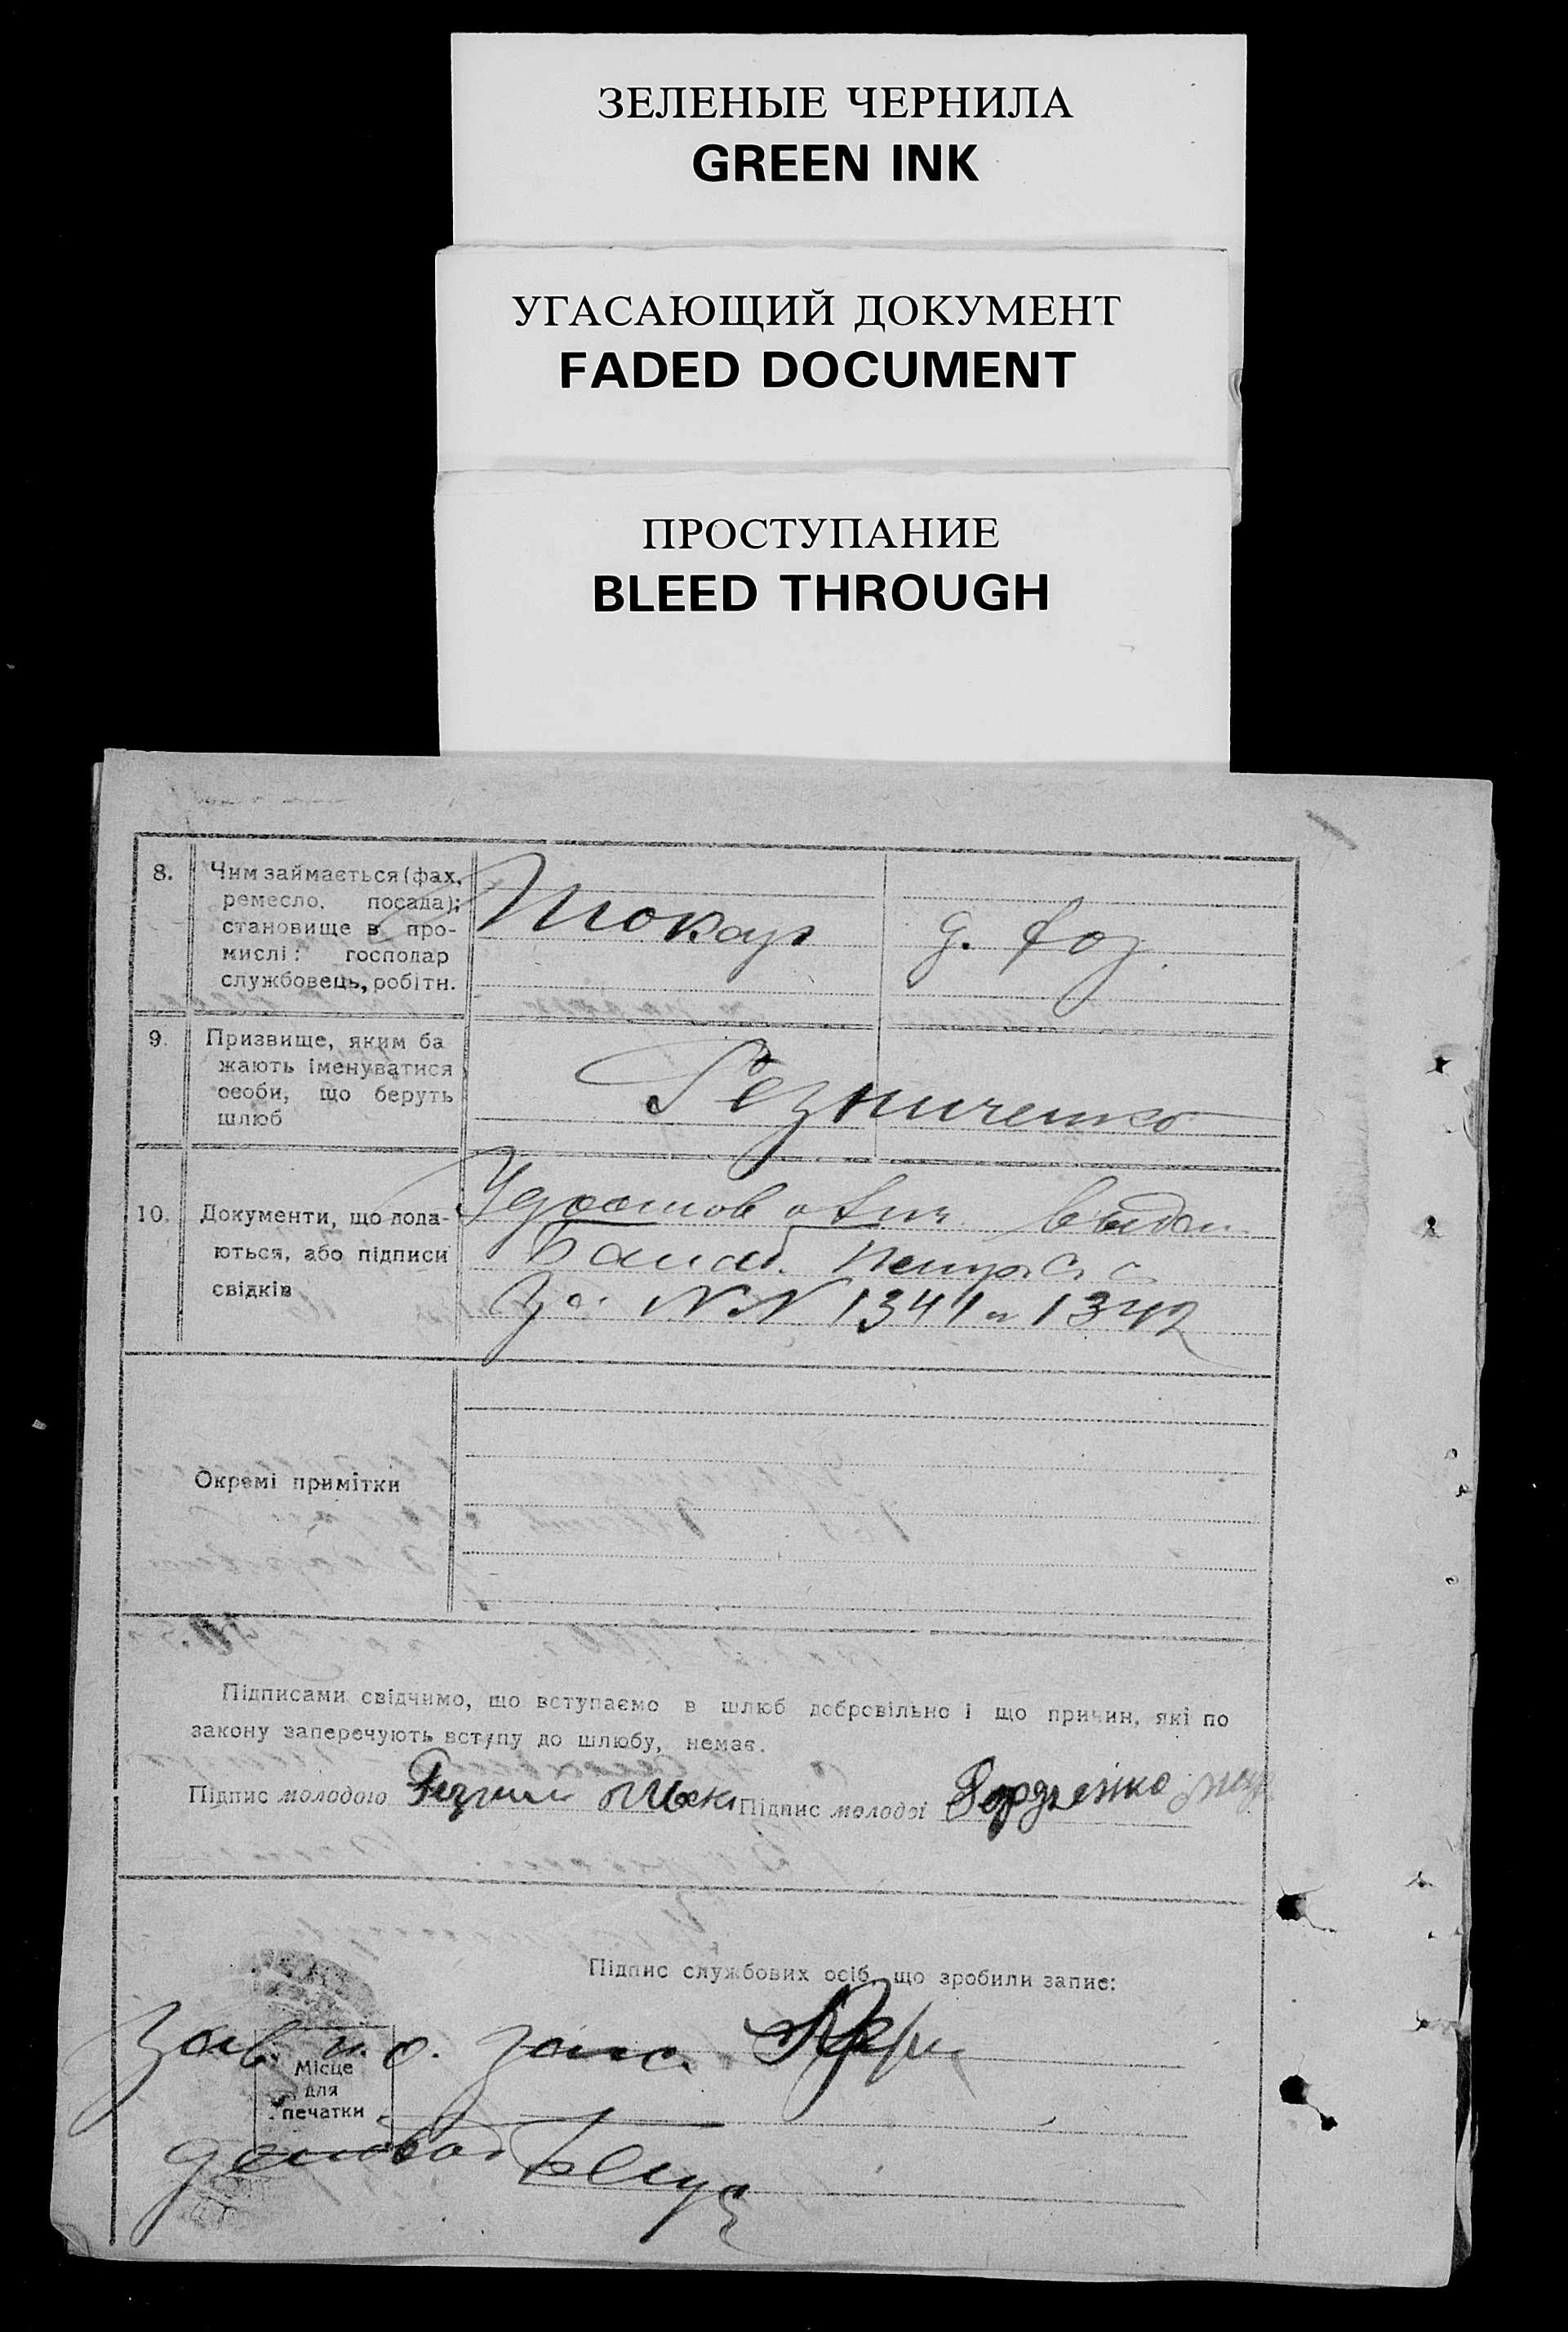 ЗЕЛЕНЫЕ ЧЕРНИЛА
GREEN INK
УГАСАЮЩИЙ ДОКУМЕНТ
FADED DOCUMENT
ПРОСТУПАНИЕ
BLEED THROUGH
8.
Чим займається (фах,
ремесло, посада);
становище в про-
мислі: господар
службовець, робітн.
Токар
д. хоз.
9.
Призвище, яким ба
жають іменуватися
особи, що беруть
шлюб
Резниченко
10.
Документи, що дода-
ються, або підписи
свідків
Удостов о
За NN 1341 и 1342
Окремі примітки
Підписами свідчимо, що вступаємо в шлюб добровільно і що причин, які по
закону заперечують вступу до шлюбу, немає.
Підпис молодого
Підпис молодої
Підпис службових осіб, що зробили запис:
Зав.
Місце
для
печатки